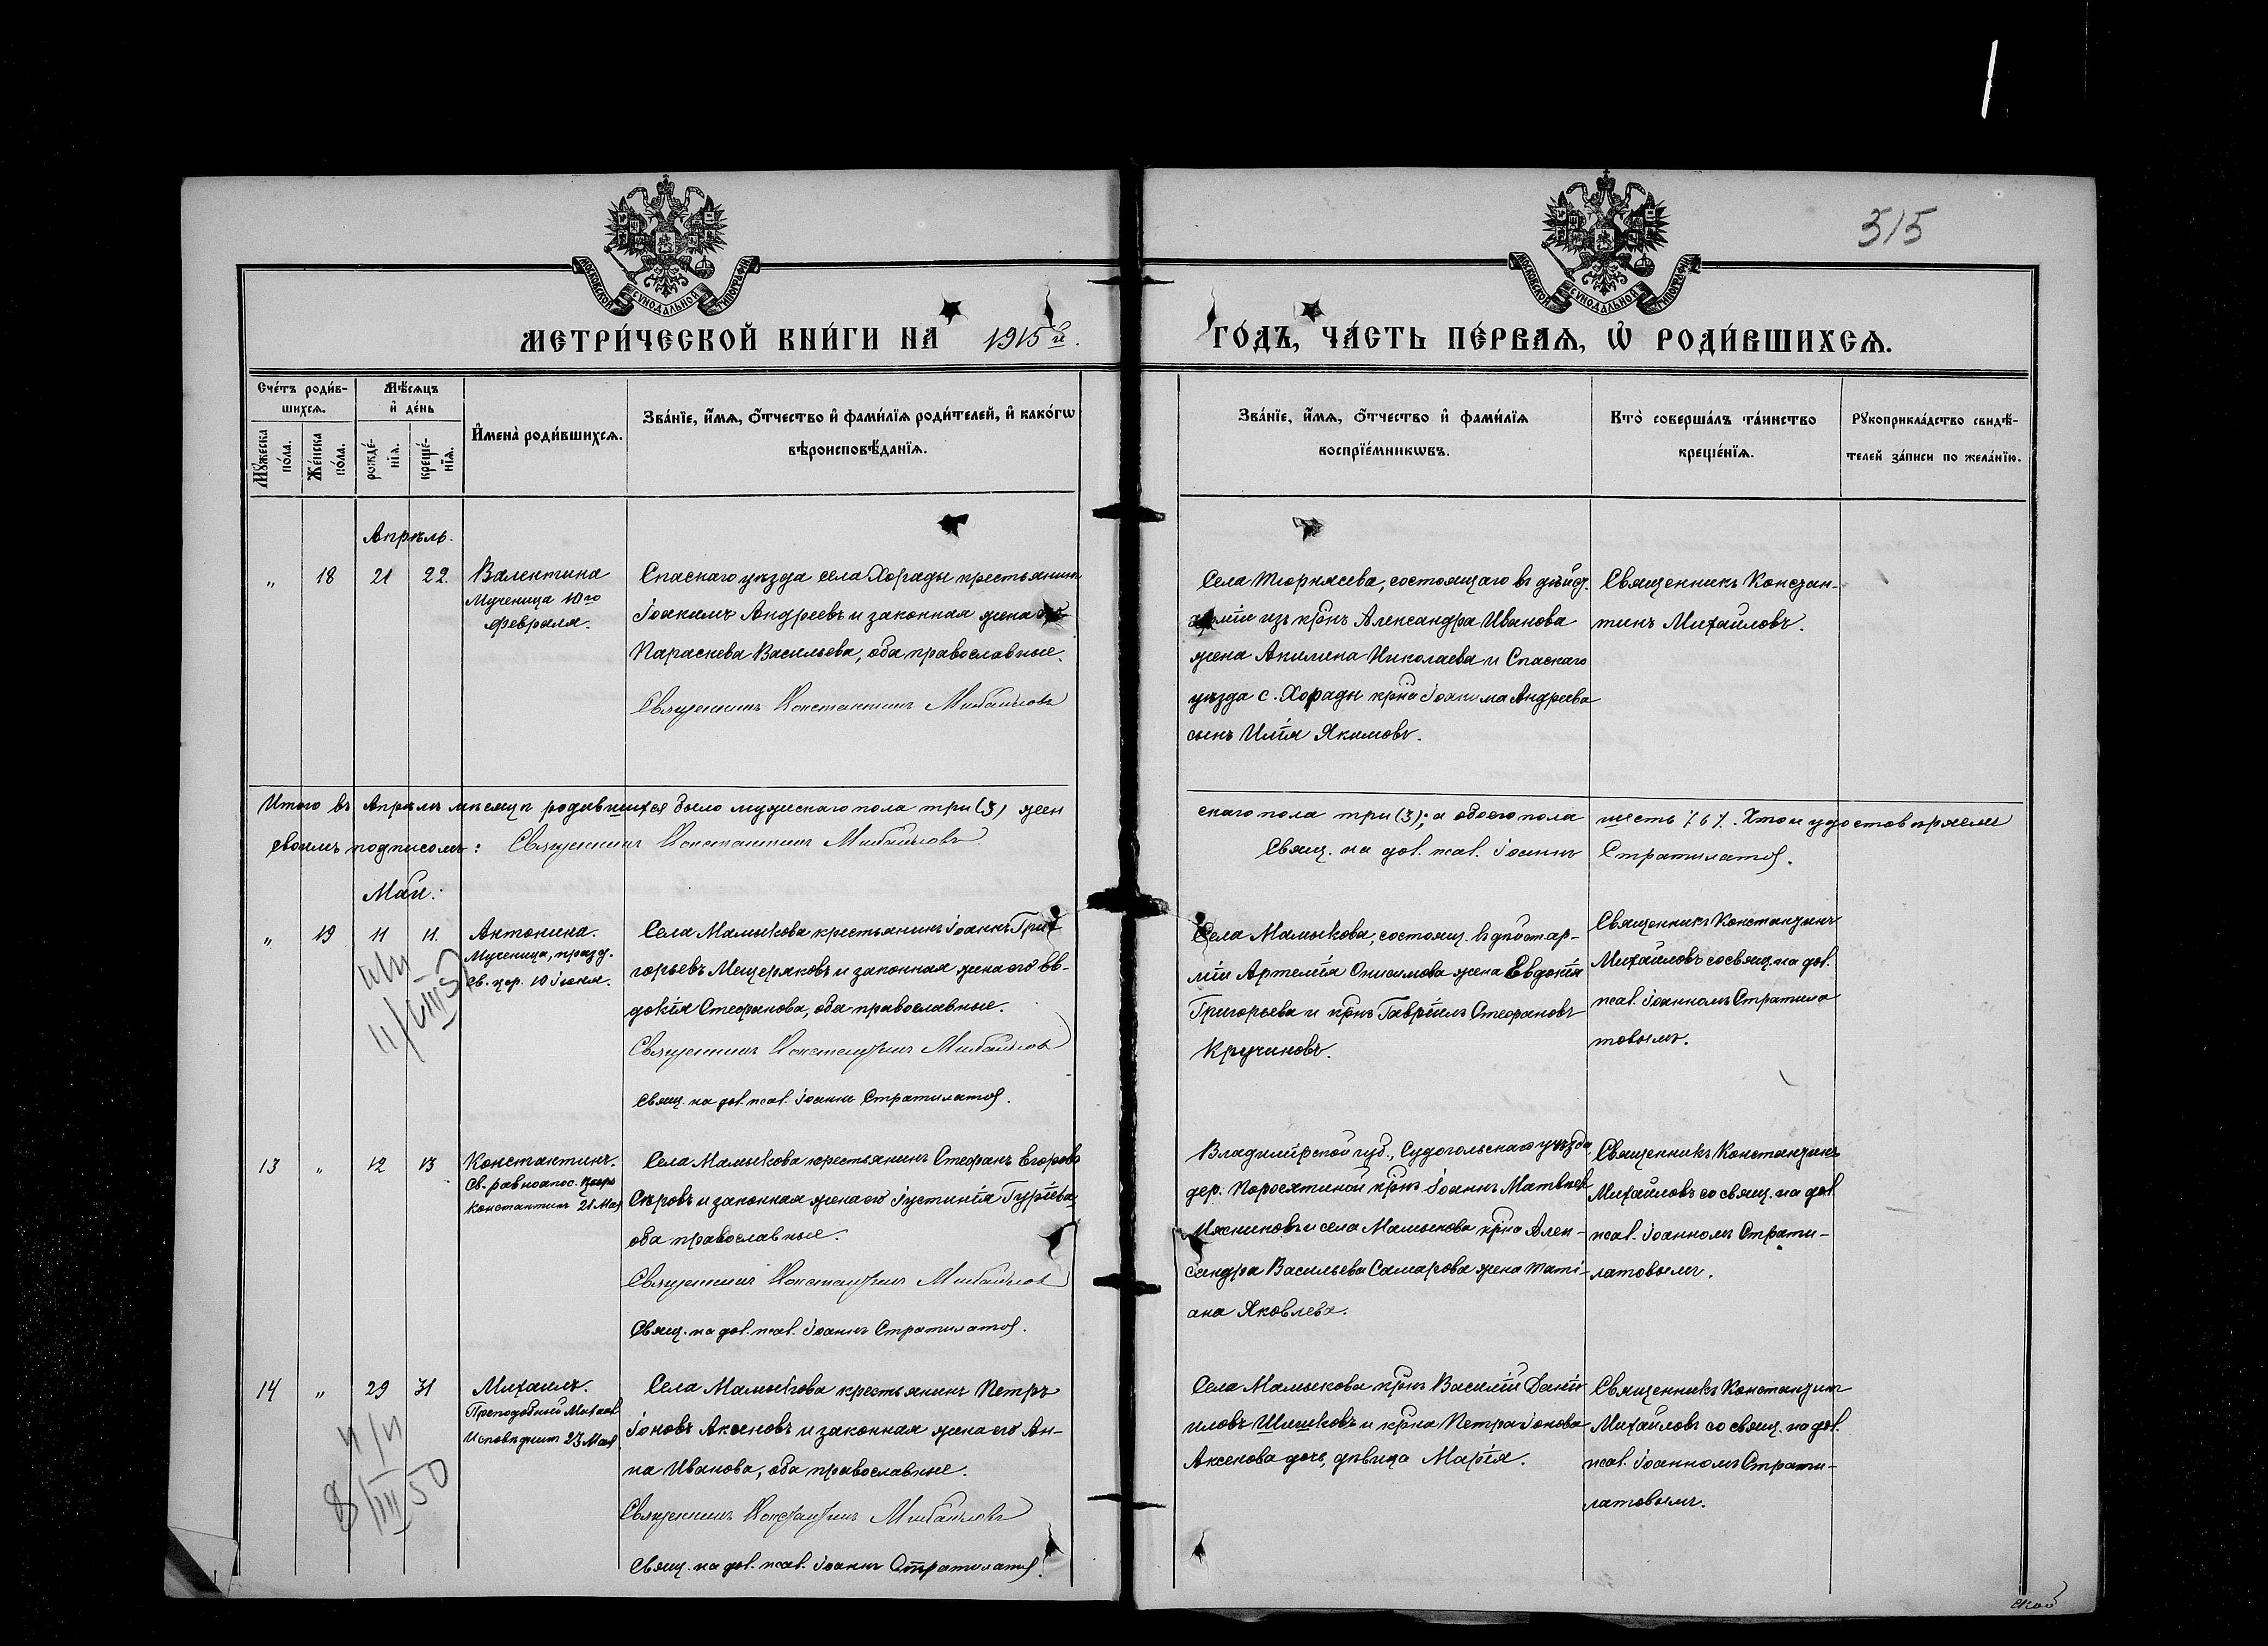 515
МОСКОВСКОЙ СѴНОДАЛЬНОЙ ТИПОГРАФІИ
МОСКОВСКОЙ СѴНОДАЛЬНОЙ ТИПОГРАФІИ
МЕТРИ́ЧЕСКОЙ КНИ́ГИ НА 1915й. ГО́ДЪ, ЧА́СТЬ ПЕ́РВАЯ, Ѡ҆ РОДИ́ВШИХСЯ.
Сче́тъ роди́в-
шихся.
Мѣ́сяцъ
и҆ де́нь
Мꙋ́жеска
по́ла.
Же́нска
по́ла.
рожде́-
нїя.
креще́-
нїя.
И҆мена̀ роди́вшихся.
Зва́нїе, и҆́мя, ѻ҆́тчество и҆ фами́лїя роди́телей, и҆ како́гѡ
вѣроисповѣ́данїя.
Зва́нїе, и҆́мя, ѻ҆́тчество и҆ фами́лїя
воспрїе́мникѡвъ.
Кто̀ соверша́лъ та́инство
креще́нїя.
Рꙋкоприкла́дство свидѣ́-
телей за́писи по жела́нїю.
Апрѣль.
„ 18 21 22.
Валентина
Мученица 10го
Февраля.
Спаскаго уѣзда села Хорады крестьянинъ
Іоакимъ Андреевъ и законная жена его
Параскева Васильева, оба православные.
Священникъ Константинъ Михайловъ
Села Тюрнясева, состоящаго въ дѣйст.
арміи изъ крнъ Александра Иванова
жена Акилина Николаева и Спаскаго
уѣзда с. Хорады крна Іоакима Андреева
сынъ Илія Якимовъ.
Священникъ Констан-
тинъ Михайловъ.
Итого въ Апрѣлѣ мѣсяцѣ родившихся было мужскаго пола три (3) жен
скаго пола три (3); а обоего пола шесть /6/. Что и удостовѣряемъ
своимъ подписомъ: Священникъ Константинъ Михайловъ
Свящ. на дол. псал. Іоаннъ Стратилатов.
Май.
„ 19 11 11.
Антонина.
Мученица, празд.
Св. цер. 10 Іюня.
Села Мамыкова крестьянинъ Іоаннъ Гри-
горьевъ Мещеряковъ и законная жена его Ев-
докія Стефанова, оба православные.
Священникъ Константинъ Михайлов
Свящ. на дол. псал. Іоаннъ Стратилатов.
Села Мамыкова, состоящ. въ дѣйст ар-
міи Артемія Онисимова жена Евдокія
Григорьева и крнъ Гавріилъ Стефановъ
Кручиновъ.
Священникъ Константинъ
Михайловъ со свящ. на дол.
псал. Іоанномъ Стратила
товымъ.
13 „ 12 13
Константинъ.
Св. равноапос. царь
Константинъ 21 Мая
Села Мамыкова крестьянинъ Стефанъ Егоровъ
Сѣровъ и законная жена его Іустинія Гурьева,
оба православные.
Священникъ Константинъ Михайлов
Свящ. на дол. псал. Іоаннъ Стратилатов.
Владимірской губ., Судогольскаго уѣзда
дер. Поросятиной крнъ Іоаннъ Матвѣев
и села Мамыкова крна Алек-
сандра Васильева Самарова жена Таті-
ана Яковлева.
Священникъ Константинъ
Михайловъ со свящ. на дол.
псал. Іоанномъ Страти-
латовымъ.
14 „ 29 31
Михаилъ.
Преподобный Михаил
Исповѣдник 23 Мая
8/III 50
Села Мамыкова крестьянинъ Петръ
Іоновъ Аксеновъ и законная жена его Ан-
на Иванова, оба православные.
Священникъ Константинъ Михайловъ
Свящ. на дол. псал. Іоаннъ Стратилатов.
Села Мамыкова крнъ Василій Дані-
иловъ Шишковъ и крна Петра Іонова
Аксенова дочь, дѣвица Марія.
Священникъ Константин
Михайловъ со свящ. на дол.
псал. Іоанномъ Страти-
латовымъ.